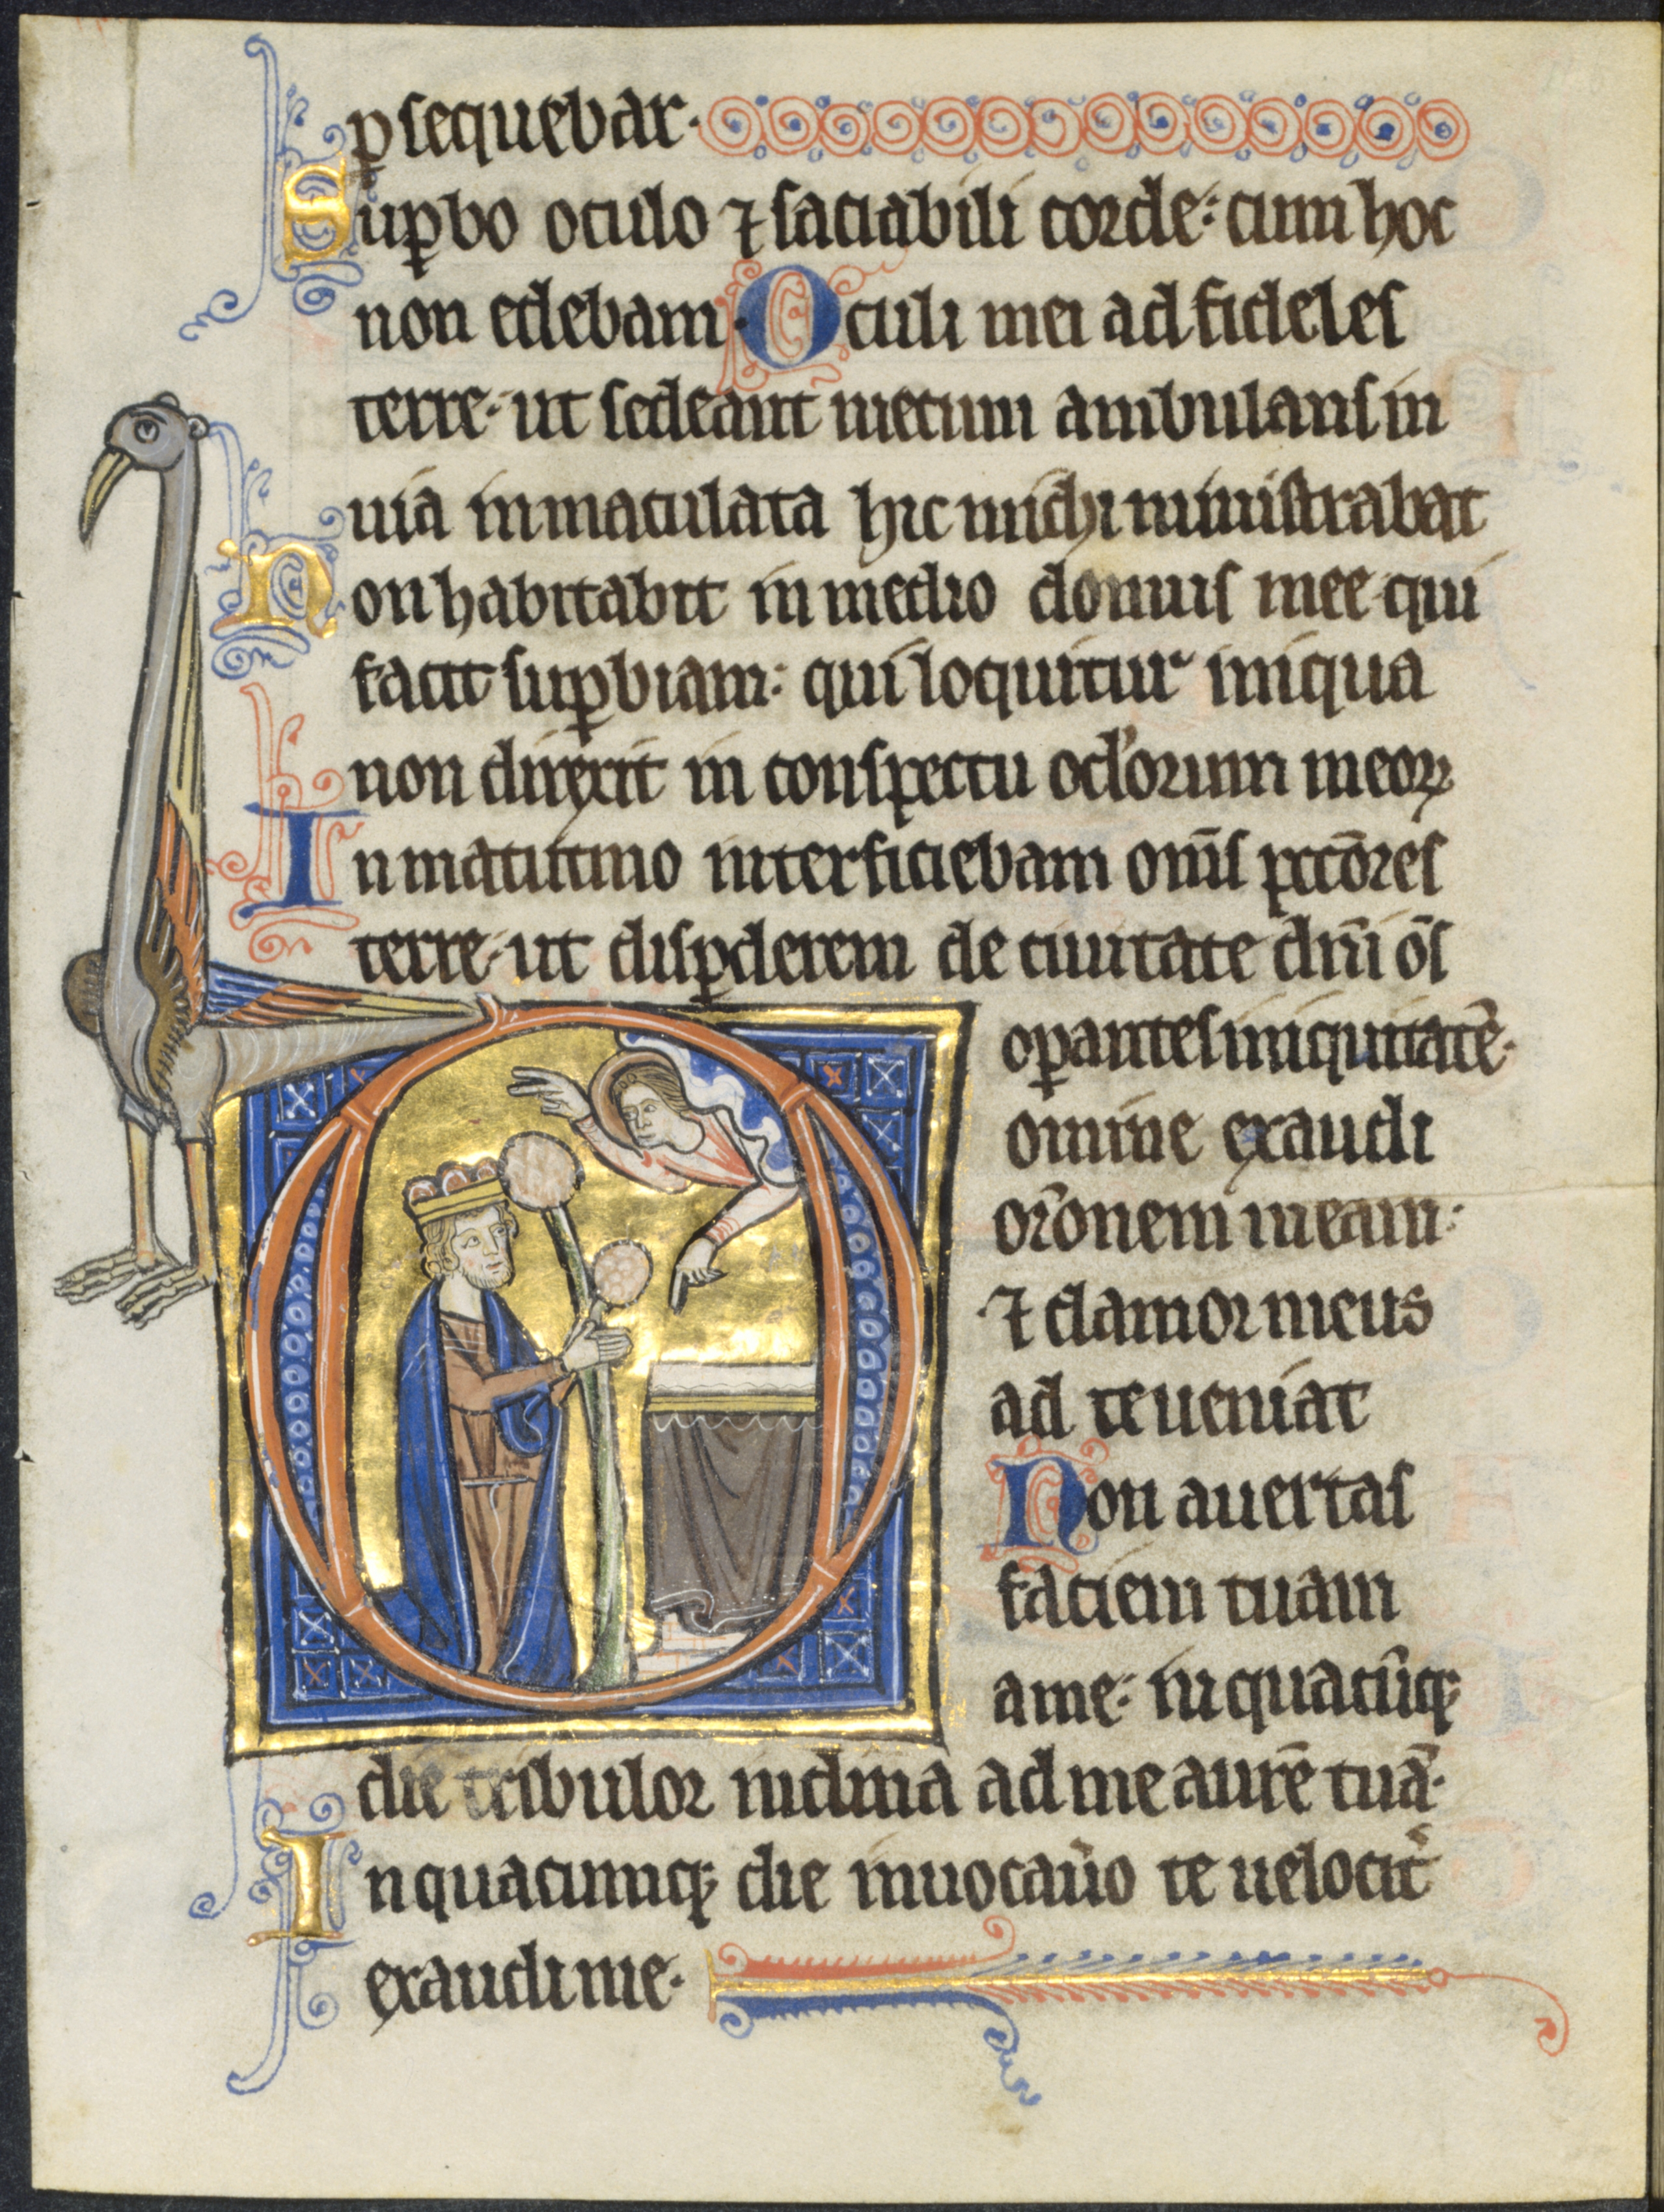 ꝑsequebar.
Suꝑbo oculo ⁊ saciabili corde: cum hoc
non edebam. Oculi mei ad fideles
terre. ut sedeant mecum ambulans in
uia inmaculata hic michi ministrabat
Non habitabit in medio domus mee qui
facit suꝑbiam: qui loquitur iniqua
non direxit in conspectu oc̓lorum meoꝝ
In matutino interficiebam om̄s pccōres
terre. ut disꝑderem de ciuitate dn̄i ōs
oꝑantes iniquitatē.
Domine exaudi
or̄onem meam:
⁊ clamor meus
ad te ueniat
Non auertas
faciem tuam
a me: in quacūqꝫ
die tribulor inclina ad me aurē tuā.
In quacumqꝫ die inuocau̓o te uelocit̓
exaudi me.